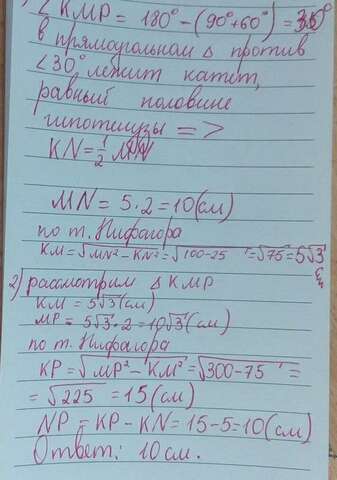 ∠KMP = 180° - (90°+60°) = 30°
в прямоугольном Δ против
∠30° лежит катет,
равный половине
гипотенузы =>
KN = 1/2 MN
MN = 5·2 = 10 (см)
по т. Пифагора
KM = √MN² - KN² = √100-25 = √75 = 5√3
2) рассмотрим Δ KMP
KM = 5√3 (см)
MP = 5√3·2 = 10√3 (см)
по т. Пифагора
KP = √MP² - KM² = √300-75 =
= √225 = 15 (см)
NP = KP - KN = 15-5 = 10 (см)
Ответ: 10 см.